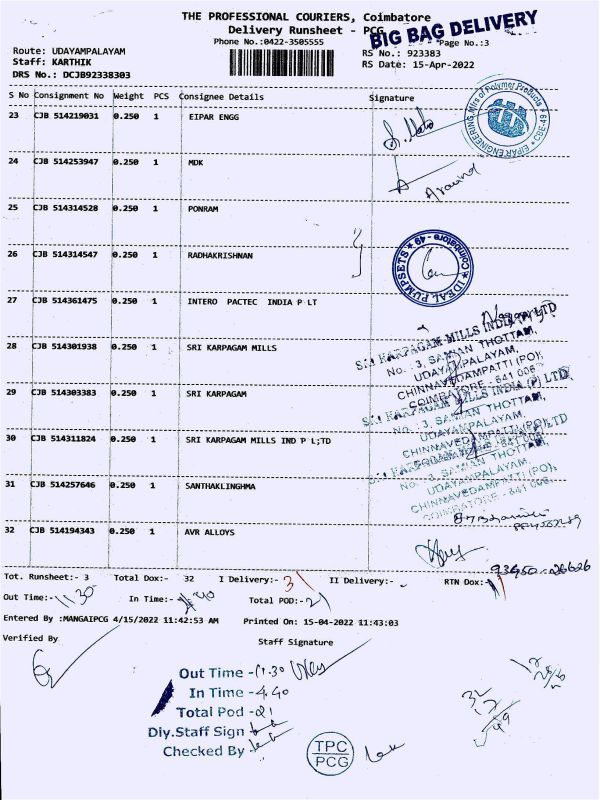 THE PROFESSIONAL COURIERS, Coimbatore
Delivery Runsheet - PCG
BIG BAG DELIVERY
Phone No.:0422-3505555 Page No.:3
Route: UDAYAMPALAYAM RS No.: 923383
Staff: KARTHIK RS Date: 15-Apr-2022
DRS No.: DCJB92338303
S No Consignment No Weight PCS Consignee Details Signature
23 CJB 514219031 0.250 1 EIPAR ENGG
EIPAR ENGINEERING Mfrs of Polymer Products CBE-49
24 CJB 514253947 0.250 1 MDK
Aravind
25 CJB 514314528 0.250 1 PONRAM
26 CJB 514314547 0.250 1 RADHAKRISHNAN
IDEAL PUMPSETS Coimbatore - 49
27 CJB 514361475 0.250 1 INTERO PACTEC INDIA P LT
28 CJB 514301938 0.250 1 SRI KARPAGAM MILLS
SRI KARPAGAM MILLS INDIA (P) LTD
No. : 3, SAMIAN THOTTAM,
UDAYAMPALAYAM,
CHINNAVEDAMPATTI (PO),
COIMBATORE - 641 006
29 CJB 514303383 0.250 1 SRI KARPAGAM
SRI KARPAGAM MILLS INDIA (P) LTD
No. : 3, SAMIAN THOTTAM,
UDAYAMPALAYAM,
CHINNAVEDAMPATTI (PO),
30 CJB 514311824 0.250 1 SRI KARPAGAM MILLS IND P L;TD
No. : 3, SAMIAN THOTTAM,
UDAYAMPALAYAM,
CHINNAVEDAMPATTI (PO),
COIMBATORE - 641 006.
31 CJB 514257646 0.250 1 SANTHAKLINGHMA
32 CJB 514194343 0.250 1 AVR ALLOYS
Tot. Runsheet:- 3 Total Dox:- 32 I Delivery:- 31 II Delivery:- RTN Dox:-
Out Time:- 11.30 In Time:- 4.40 Total POD:- 21
Entered By :MANGAIPCG 4/15/2022 11:42:53 AM Printed On: 15-04-2022 11:43:03
Verified By Staff Signature
Out Time - 11.30
In Time - 4.40
Total Pod - 21
Diy.Staff Sign
Checked By
TPC
PCG